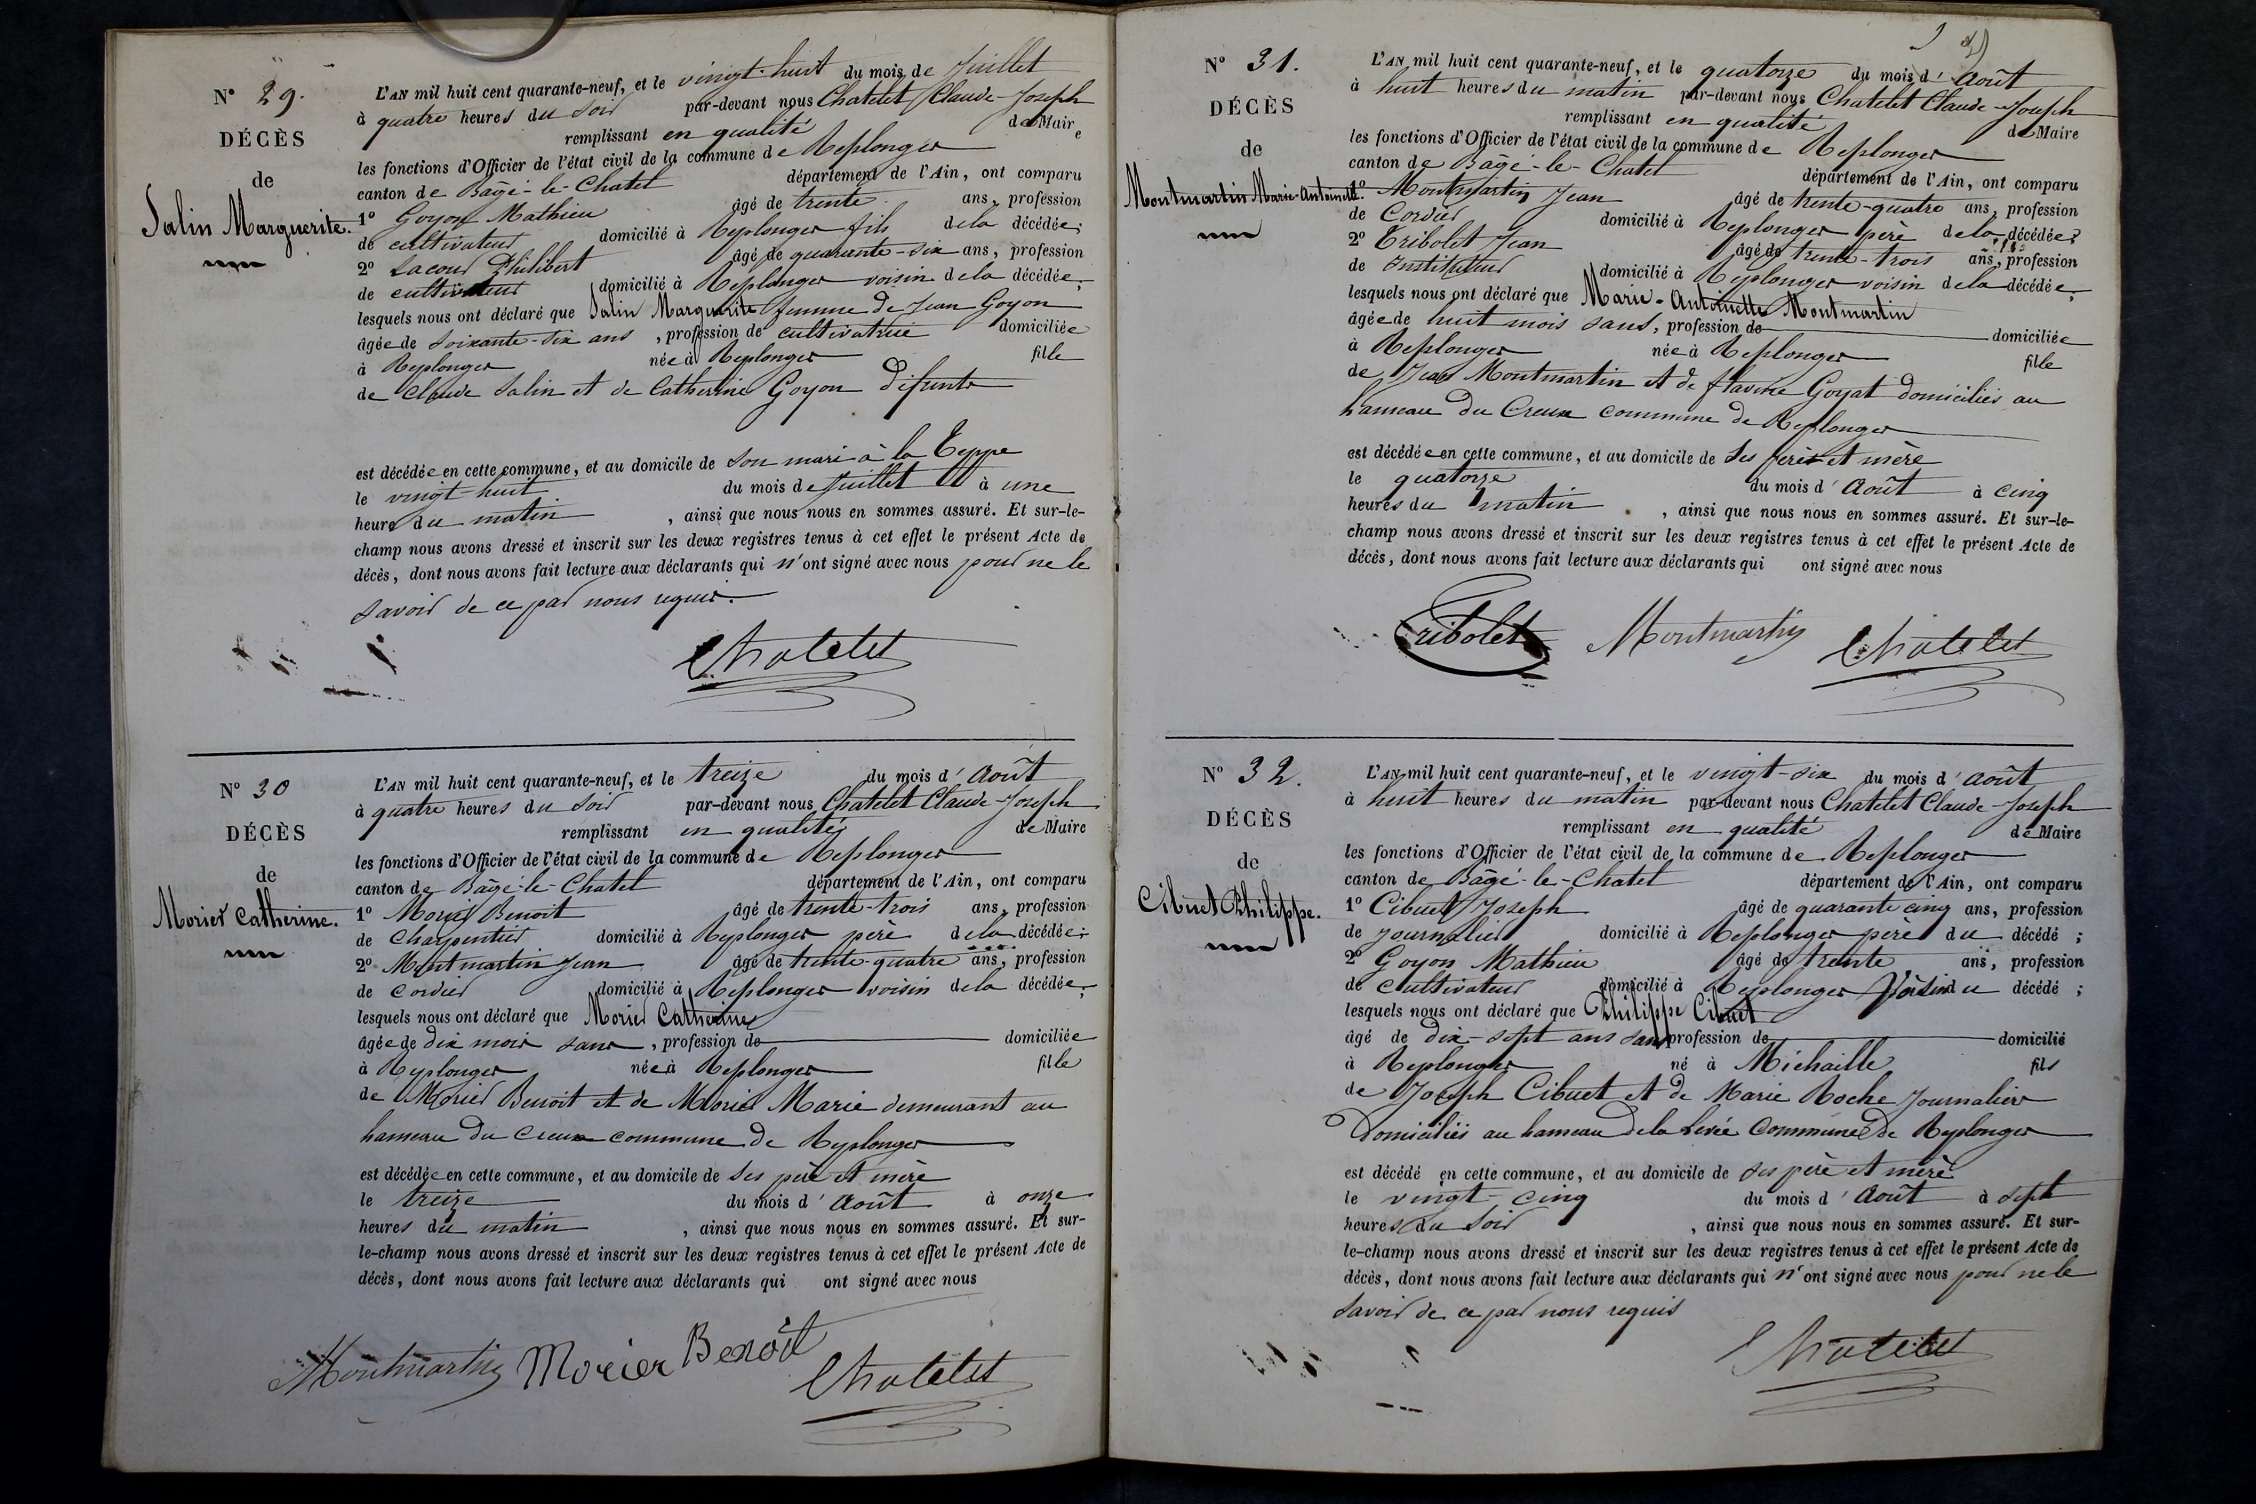 N° 29.
DÉCÈS
de
Salin Marguerite.
L'AN mil huit cent quarante-neuf, et le vingt-huit du mois de Juillet
à quatre heures du soir par-devant nous Chatelet Claude-Joseph
remplissant en qualité de Maire
les fonctions d'Officier de l'état civil de la commune de Replonges
canton de Bâgé-le-Chatel département de l'Ain, ont comparu
1° Goyon Mathieu âgé de trente ans, profession
de cultivateur domicilié à Replonges fils de la décédée;
2° Lacour Philibert âgé de quarante-six ans, profession
de cultivateur domicilié à Replonges voisin de la décédée;
lesquels nous ont déclaré que Salin Marguerite femme de Jean Goyon
âgée de soixante-six ans, profession de cultivatrice domiciliée
à Replonges née à Replonges fille
de Claude Salin et de Catherine Goyon défunts
est décédée en cette commune, et au domicile de son mari à la Teppe
le vingt-huit du mois de Juillet à une
heure du matin, ainsi que nous nous en sommes assuré. Et sur-le-
champ nous avons dressé et inscrit sur les deux registres tenus à cet effet le présent Acte de
décès, dont nous avons fait lecture aux déclarants qui n'ont signé avec nous pour ne le
savoir de ce par nous requis.
Chatelet
N° 30
DÉCÈS
de
Morier Catherine.
L'AN mil huit cent quarante-neuf, et le treize du mois d'Août
à quatre heures du soir par-devant nous Chatelet Claude-Joseph
remplissant en qualité de Maire
les fonctions d'Officier de l'état civil de la commune de Replonges
canton de Bâgé-le-Chatel département de l'Ain, ont comparu
1° Morier Benoit âgé de trente-trois ans, profession
de Charpentier domicilié à Replonges père de la décédée;
2° Montmartin Jean âgé de trente-quatre ans, profession
de Cordier domicilié à Replonges voisin de la décédée;
lesquels nous ont déclaré que Morier Catherine
âgée de dix mois sans, profession de domiciliée
à Replonges née à Replonges fille
de Morier Benoit et de Morier Marie demeurant au
hameau du Creux commune de Replonges
est décédée en cette commune, et au domicile de ses père et mère
le treize du mois d'Août à onze
heures du matin, ainsi que nous nous en sommes assuré. Et sur-
le-champ nous avons dressé et inscrit sur les deux registres tenus à cet effet le présent Acte de
décès, dont nous avons fait lecture aux déclarants qui ont signé avec nous
Montmartin Morier Benoit Chatelet
N° 31.
DÉCÈS
de
Montmartin Marie-Antoinette.
L'AN mil huit cent quarante-neuf, et le quatorze du mois d'Août
à huit heures du matin par-devant nous Chatelet Claude-Joseph
remplissant en qualité de Maire
les fonctions d'Officier de l'état civil de la commune de Replonges
canton de Bâgé-le-Chatel département de l'Ain, ont comparu
1° Montmartin Jean âgé de trente-quatre ans, profession
de Cordier domicilié à Replonges père de la décédée;
2° Tribolet Jean âgé de trente-trois ans, profession
de Instituteur domicilié à Replonges voisin de la décédée;
lesquels nous ont déclaré que Marie-Antoinette Montmartin
âgée de huit mois sans, profession de domiciliée
à Replonges née à Replonges fille
de Jean Montmartin et de flavine Goyat domiciliés au
hameau du Creux commune de Replonges
est décédée en cette commune, et au domicile de ses père et mère
le quatorze du mois d'Août à cinq
heures du matin, ainsi que nous nous en sommes assuré. Et sur-le-
champ nous avons dressé et inscrit sur les deux registres tenus à cet effet le présent Acte de
décès, dont nous avons fait lecture aux déclarants qui ont signé avec nous
Tribolet Montmartin Chatelet
N° 32.
DÉCÈS
de
Cibuet Philippe.
L'AN mil huit cent quarante-neuf, et le vingt-six du mois d'août
à huit heures du matin par-devant nous Chatelet Claude-Joseph
remplissant en qualité de Maire
les fonctions d'Officier de l'état civil de la commune de Replonges
canton de Bâgé-le-Chatel département de l'Ain, ont comparu
1° Cibuet Joseph âgé de quarante cinq ans, profession
de journalier domicilié à Replonges père du décédé;
2° Goyon Mathieu âgé de trente ans, profession
de cultivateur domicilié à Replonges Voisin du décédé;
lesquels nous ont déclaré que Philippe Cibuet
âgé de dix-sept ans sans profession de domicilié
à Replonges né à Michaille fils
de Joseph Cibuet et de Marie Roche Journaliers
Domiciliés au hameau de la Levée Commune de Replonges
est décédé en cette commune, et au domicile de ses père et mère
le vingt-cinq du mois d'Août à sept
heures du soir, ainsi que nous nous en sommes assuré. Et sur-
le-champ nous avons dressé et inscrit sur les deux registres tenus à cet effet le présent Acte de
décès, dont nous avons fait lecture aux déclarants qui n'ont signé avec nous pour ne le
savoir de ce par nous requis
Chatelet